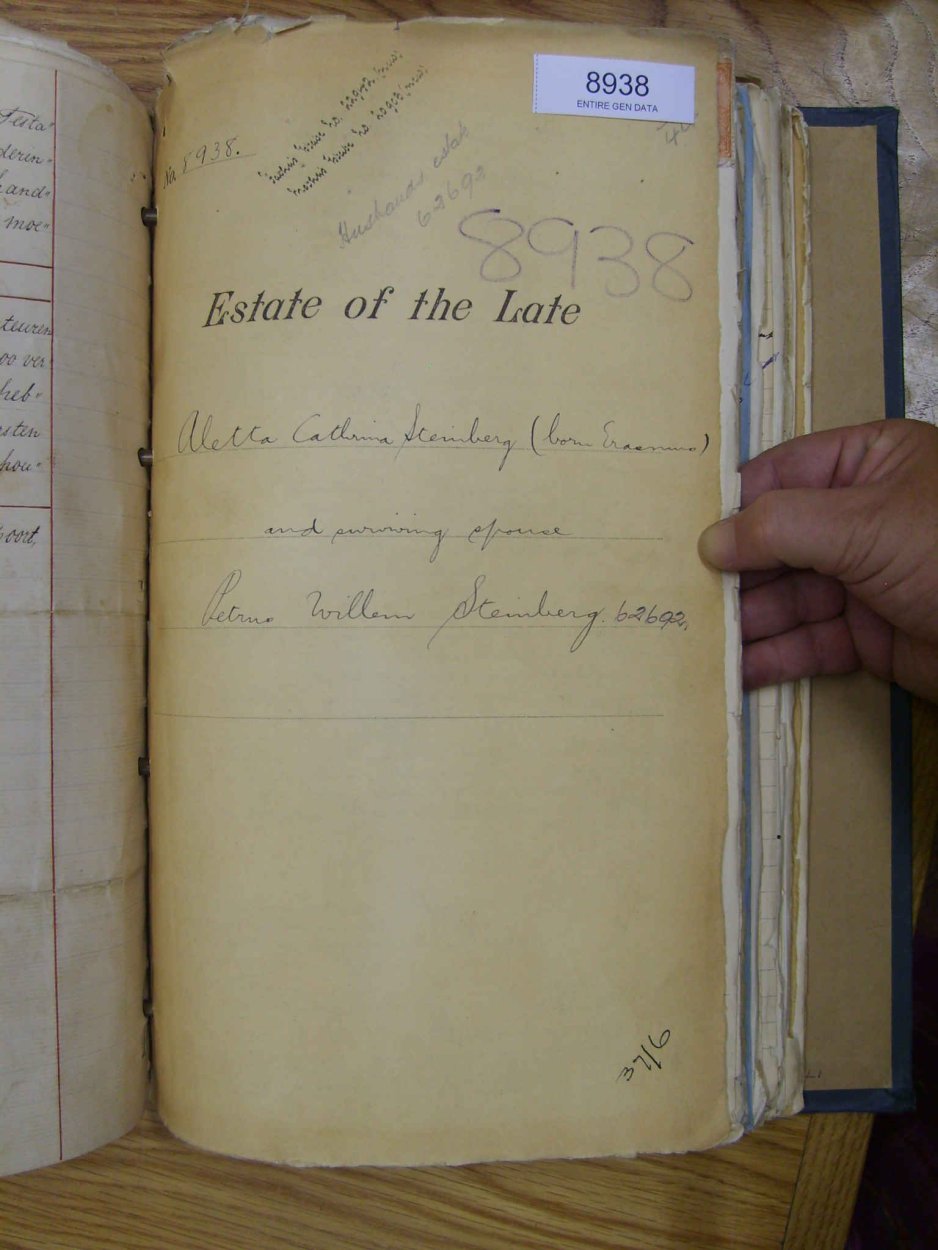 8938
ENTIRE GEN DATA
No. 8938.
Husbands estate
62692
8938
Estate of the Late
Aletta Cathrina Steinberg (born Erasmus)
and surviving spouse
Petrus Willem Steinberg. 62692.
37/6
Testa"
derin"
and"
moe"
teuren
oo ver
heb"
sten
hou"
oort,